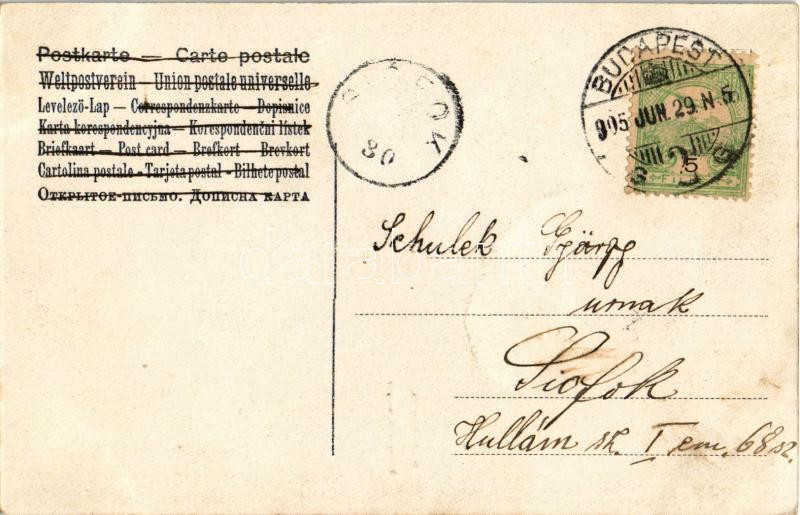 Postkarte — Carte postale
Weltpostverein — Union postale universelle
Levelező-Lap — Correspondenzkarte — Dopisnice
Karta korespondencyjna — Korespondenční lístek
Briefkaart — Post card — Brefkort — Brevkort
Cartolina postale - Tarjeta postal - Bilhete postal
Открытое-письмо. Дописна карта
SIÓFOK
30
BUDAPEST
905 JUN. 29. N. 5
5
Schulek György
urnak
Siófok
Hullám sz. I em. 68 sz.